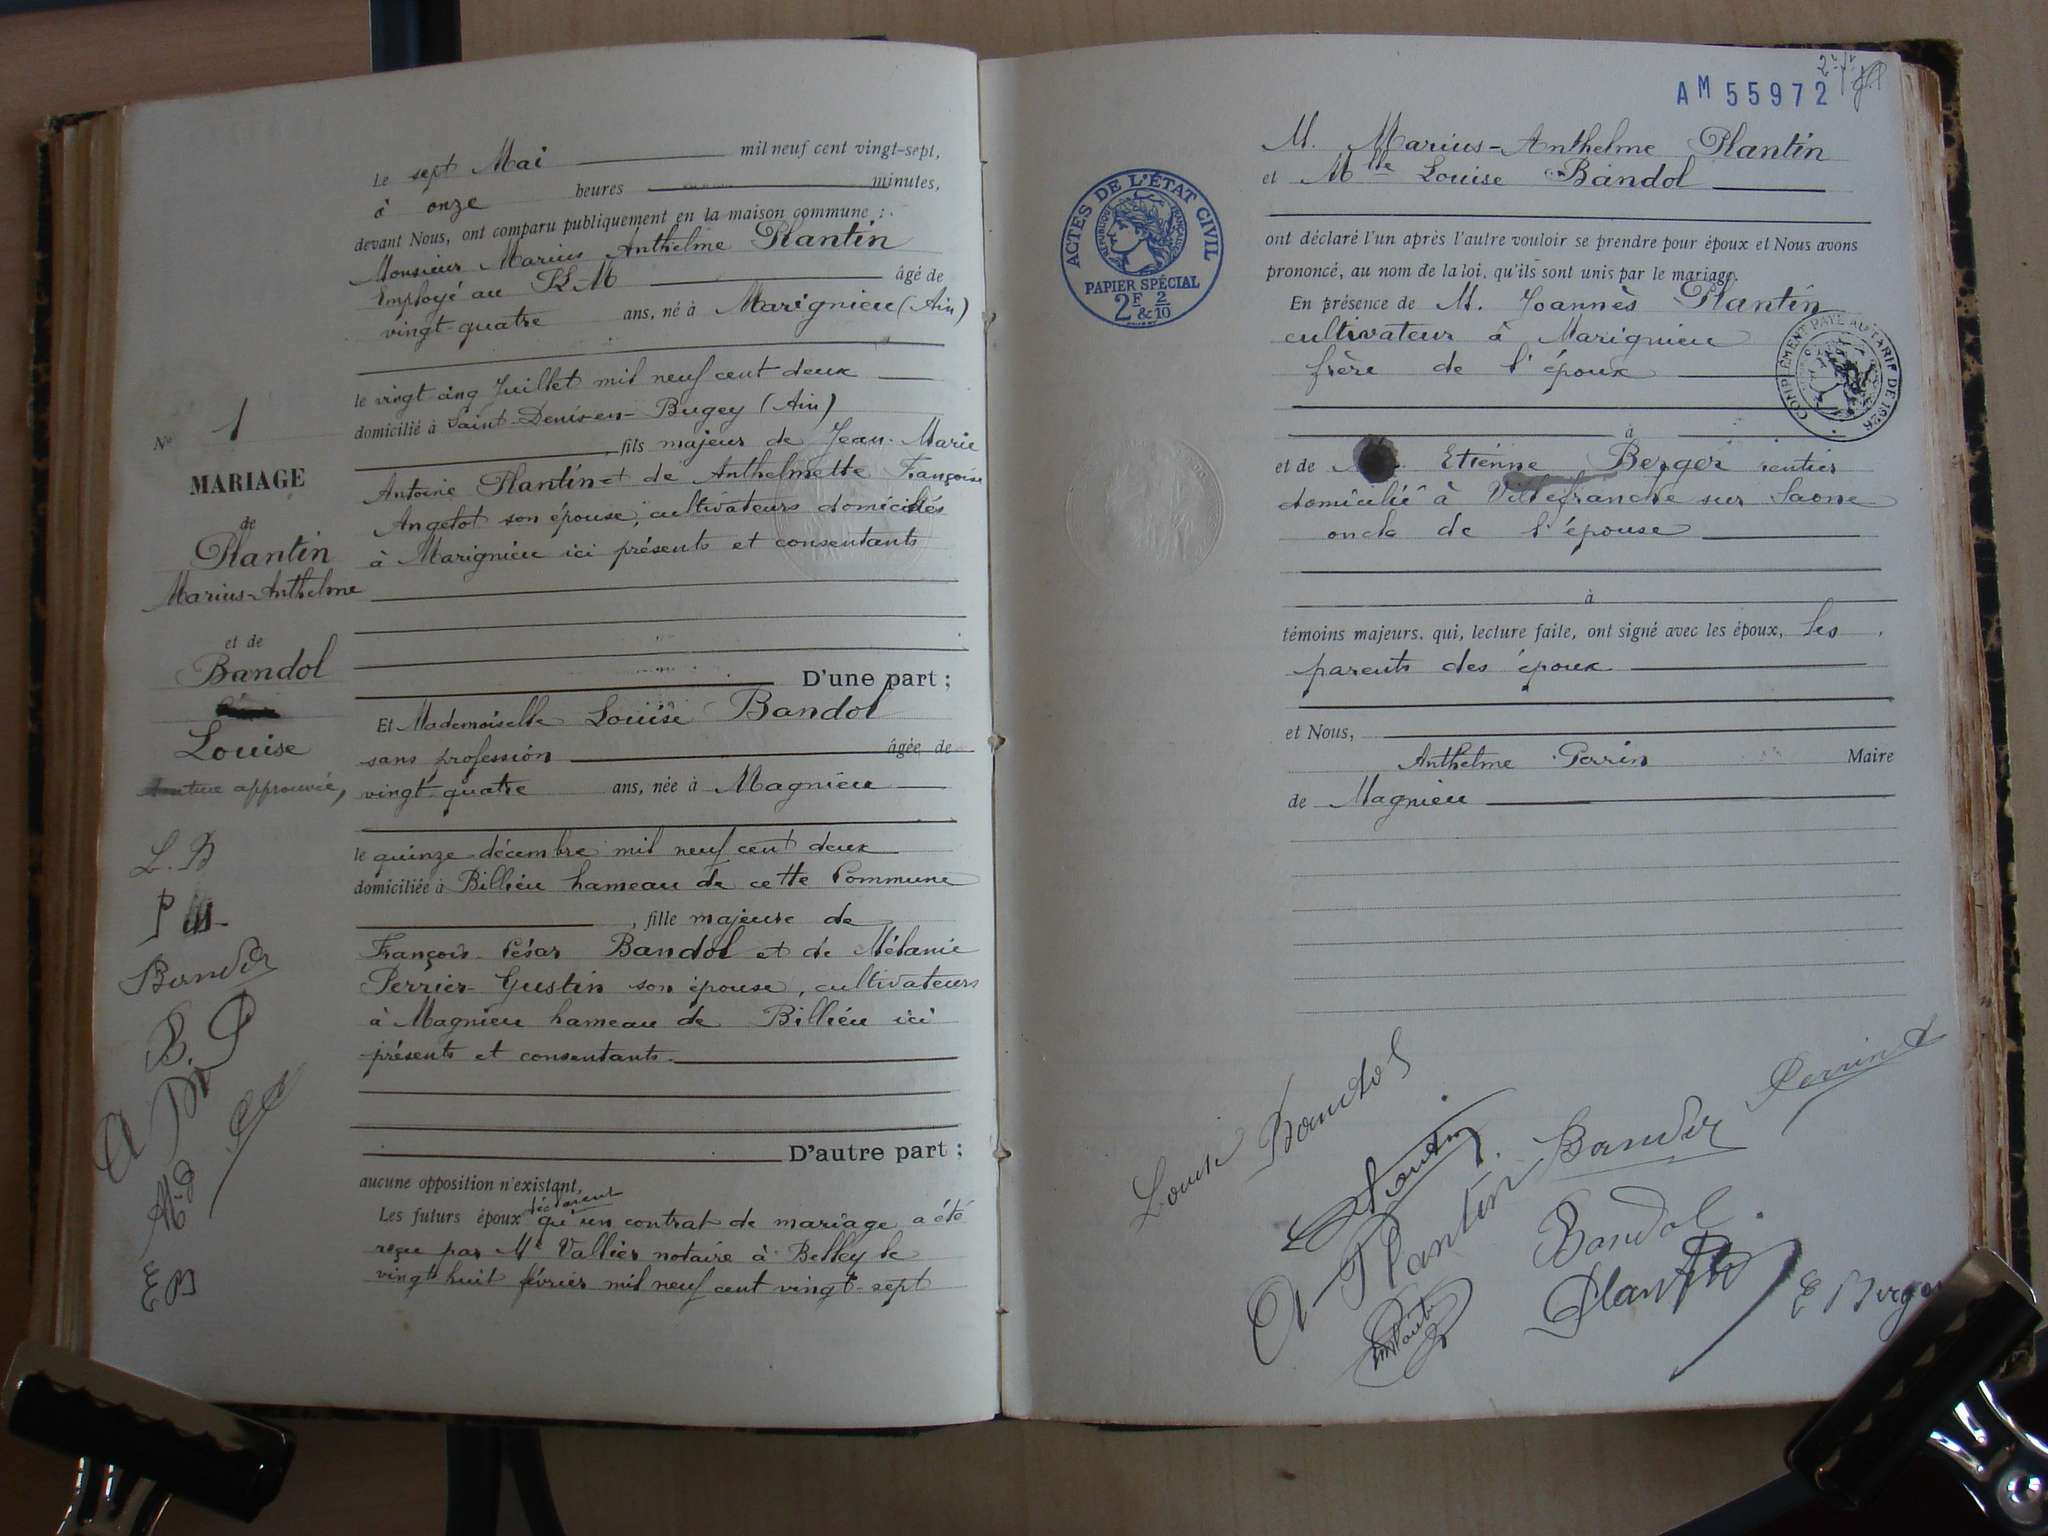 Le sept Mai mil neuf cent vingt-sept,
à onze heures minutes,
devant Nous, ont comparu publiquement en la maison commune :
Monsieur Marius Anthelme Plantin
Employé au PLM âgé de
vingt-quatre ans, né à Marignieu (Ain)
le vingt cinq Juillet mil neuf cent deux
domicilié à Saint-Denis-en-Bugey (Ain)
, fils majeur de Jean-Marie
Antoine Plantin et de Anthelmette Françoise
Angelot son épouse, cultivateurs domiciliés
à Marignieu ici présents et consentants
D'une part ;
Et Mademoiselle Louise Bandol
sans profession âgée de
vingt-quatre ans, née à Magnieu
le quinze décembre mil neuf cent deux
domiciliée à Billieu hameau de cette Commune
, fille majeure de
François-César Bandol et de Mélanie
Perrier-Gustin son épouse, cultivateurs
à Magnieu hameau de Billieu ici
présents et consentants.
D'autre part ;
aucune opposition n'existant,
déclarent
Les futurs époux qu'un contrat de mariage a été
reçu par Me Vallier notaire à Belley le
vingt huit février mil neuf cent vingt-sept
No 1
MARIAGE
de
Plantin
Marius-Anthelme
et de
Bandol
Louise
approuvée,
L. B
B. P
E B
AM 55972
M. Marius-Anthelme Plantin
et Mlle Louise Bandol
ont déclaré l'un après l'autre vouloir se prendre pour époux et Nous avons
prononcé, au nom de la loi, qu'ils sont unis par le mariage.
En présence de M. Joannès Plantin
cultivateur à Marignieu
frère de l'époux
à
et de Etienne Berger rentier
domicilié à Villefranche sur Saone
oncle de l'épouse
à
témoins majeurs, qui, lecture faite, ont signé avec les époux, les
parents des époux
et Nous,
Anthelme Perrin Maire
de Magnieu
ACTES DE L'ÉTAT CIVIL
RÉPUBLIQUE FRANÇAISE
PAPIER SPÉCIAL
2F & 2/10
COMPLÉMENT PAYÉ AU TARIF DE 1926
Louise Bandol
Plantin
A Plantin
Bandol
Perrin A
Plantin
E Berger